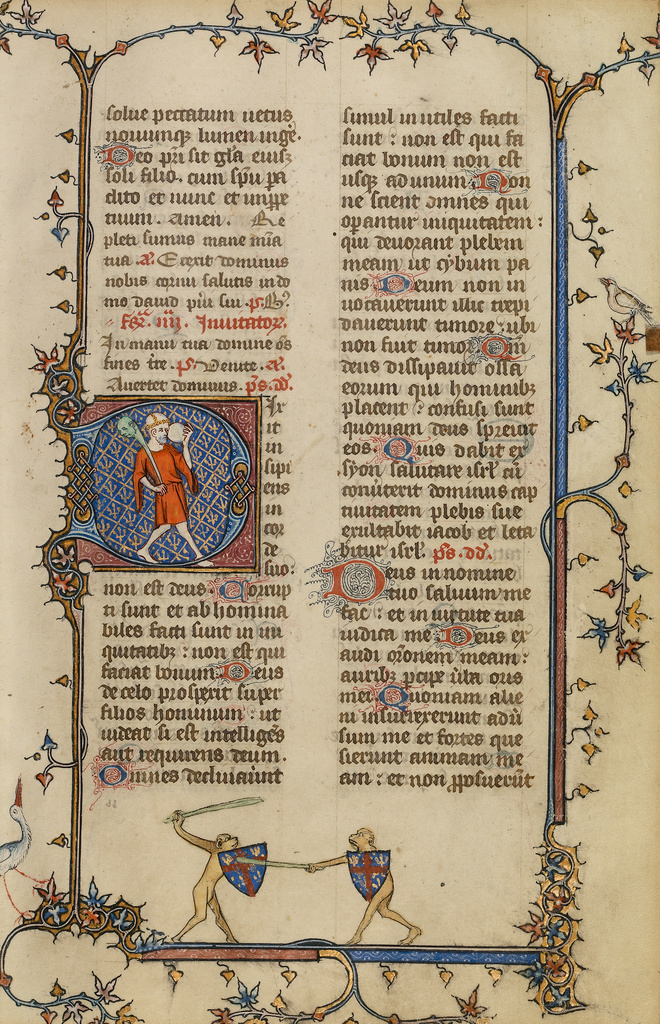 solue peccatum uetus
nouumq; lumen inge.
Deo pri sit gla eiusq;
soli filio. cum spu pa
dito et nunc et in ppe
tuum. Amen. Re
pleti sumus mane mia
tua. Erexit dominus
nobis cornu salutis in do
mo dauid pueri sui. p. B9.
fer. iiii. Inuitator.
In manu tua domine os
fines tre. ps. Venite. a.
Auertet dominus. ps. dd.
Dix
it
in
sipi
ens
in
cor
de
suo:
non est deus. Corrup
ti sunt et abhomina
biles facti sunt in ini
quitatib; : non est qui
faciat bonum. Deus
de celo prospexit super
filios hominum : ut
uideat si est intelliges
aut requirens deum.
Omnes declinauerunt
simul inutiles facti
sunt : non est qui fa
ciat bonum non est
usq; ad unum. Non
ne scient omnes qui
operantur iniquitatem :
qui deuorant plebem
meam ut cybum pa
nis. Deum non in
uocauerunt illic trepi
dauerunt timore : ubi
non fuit timor. Qm
deus dissipauit ossa
eorum qui hominib;
placent : confusi sunt
quoniam deus spreuit
eos. Quis dabit ex
syon salutare isrl cu
conuterit dominus cap
tiuitatem plebis sue
exultabit iacob et leta
bitur isrl. ps. dd.
Deus in nomine
tuo saluum me
fac : et in uirtute tua
iudica me. Deus ex
audi oronem meam :
aurib; pcipe uba oris
mei. Quoniam alie
ni insurrexerunt adu
sum me et fortes que
sierunt animam me
am : et non pposuerut